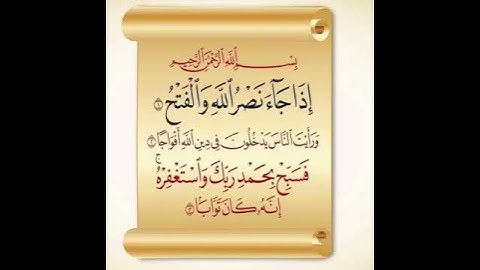 بِسْمِ ٱللَّهِ ٱلرَّحْمَٰنِ ٱلرَّحِيمِ
إِذَا جَآءَ نَصْرُ ٱللَّهِ وَٱلْفَتْحُ ۝١
وَرَأَيْتَ ٱلنَّاسَ يَدْخُلُونَ فِى دِينِ ٱللَّهِ أَفْوَاجًا ۝٢
فَسَبِّحْ بِحَمْدِ رَبِّكَ وَٱسْتَغْفِرْهُ ۚ
إِنَّهُۥ كَانَ تَوَّابًۢا ۝٣